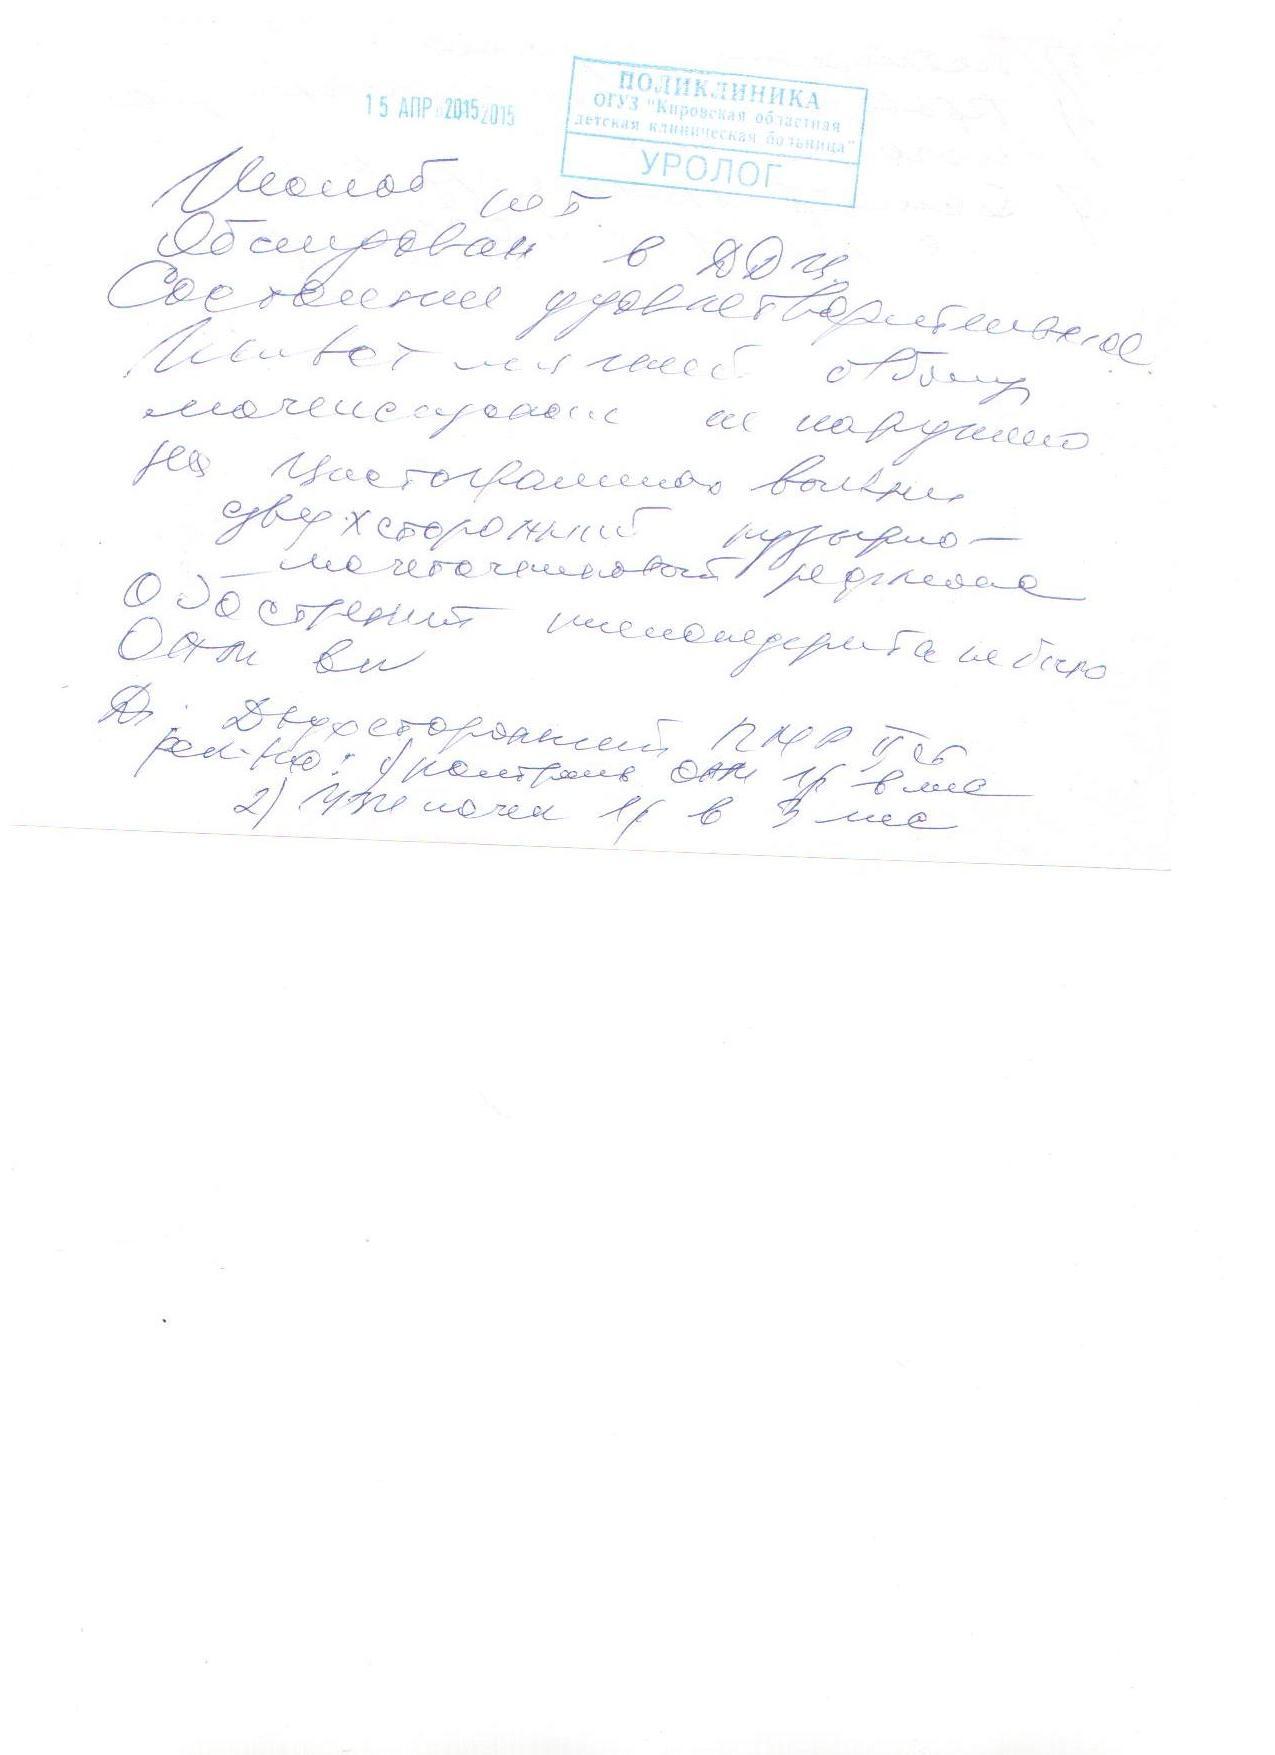 15 АПР 2015 2015
ПОЛИКЛИНИКА
ОГУЗ "Кировская областная
детская клиническая больница"
УРОЛОГ
Жалоб
Обследован в ДДЦ
Состояние удовлетворительное
Живот мягкий
мочеиспускание не нарушено
На цистограммах
двухсторонний пузырно-
мочеточниковый рефлюкс
Обострений пиелонефрита не было
ОАМ
Ds: Двухсторонний ПМР II ст
Рек-но: 1) контроль ОАМ 1р в мес
2) УЗИ почек 1р в 3 мес